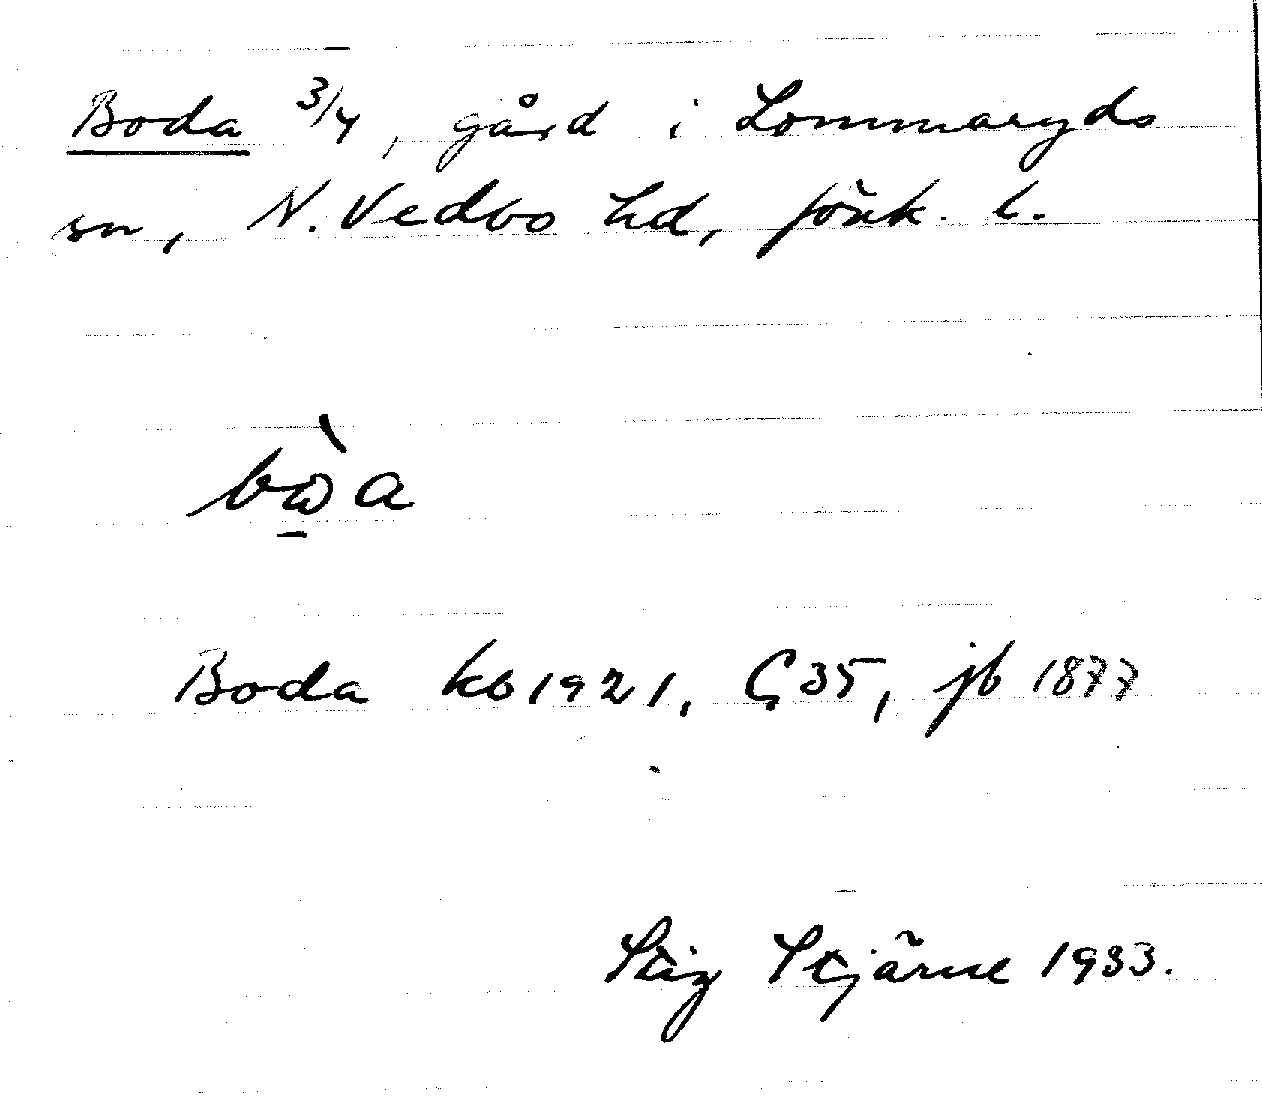 Boda 3/4, gård i Lommaryds
sn, N. Vedbo hd, Jönk. l.
Boda kb 1921, G 35, jb 1877
Stig Stjärne 1933.